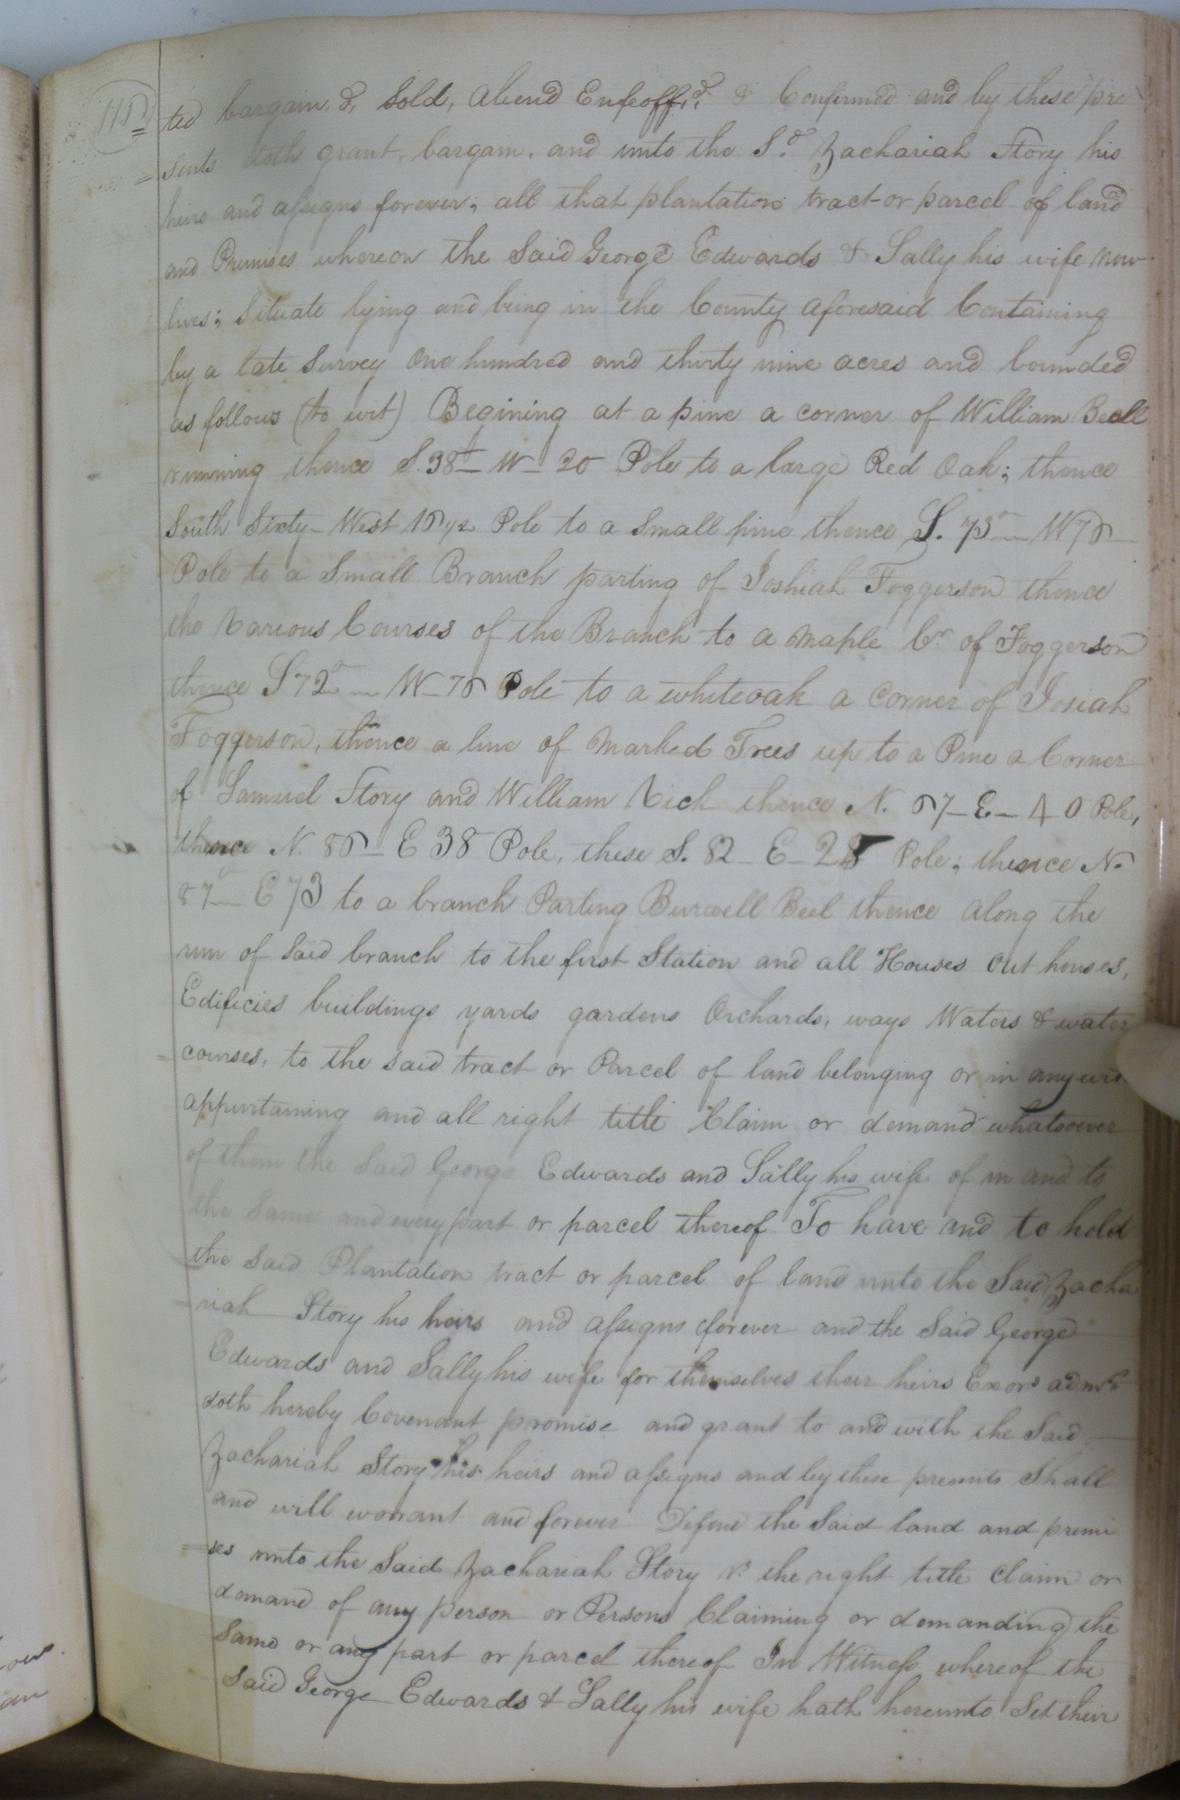 ted bargain.d, Sold, aliend Enfeoff.d & Confirmed and by these pre
sents doth grant, bargain, and unto the S.d Zachariah Story his
heirs and assigns forever; all that plantation tract or parcel of land
and Premises whereon the Said George Edwards & Sally his wife now
lives; Situate lying and being in the County aforesaid Containing
by a late Survey One hundred and thirty nine acres and bounded
as follows (to wit) Begining at a pine a corner of William Beall
running thence S. 38 W 20 Pole to a large Red Oak; thence
South Sixty West 16 1/2 Pole to a Small pine thence S. 73 W 76
Pole to a Small Branch parting of Joshiah Foggerson thence
the Various Courses of the Branch to a maple Cr. of Foggerson
thence S 72 W 76 Pole to a whiteoak a corner of Josiah
Foggerson, thence a line of Marked Trees up to a Pine a Corner
of Samuel Story and William Vick thence N. 67 E 40 Pole,
thence N. 86 E 38 Pole, these S. 82 E Pole; thence N.
87 E 73 to a branch Parting Burwell Beel thence along the
run of Said branch to the first Station and all Houses out houses,
Edificies buildings yards gardens Orchards, ways Waters & water
courses, to the said tract or Parcel of land belonging or in anywis
appurtaining and all right title Claim or demand whatsoever
of them the Said George Edwards and Sally his wife of in and to
the Same and every part or parcel thereof To have and to hold
the said Plantation tract or parcel of land unto the Said Zacha
riah Story his heirs and assigns forever and the Said George
Edwards and Sally his wife for themselves their heirs Exors admrs
doth hereby Covenant promise and grant to and with the Said
Zachariah Story his heirs and assigns and by these presents Shall
and will warrant and forever Defend the Said land and premi
ses unto the Said Zachariah Story vs the right title claim or
demand of any person or Persons Claiming or demanding the
Same or any part or parcel thereof In Witness whereof the
Said George Edwards & Sally his wife hath hereunto Set their